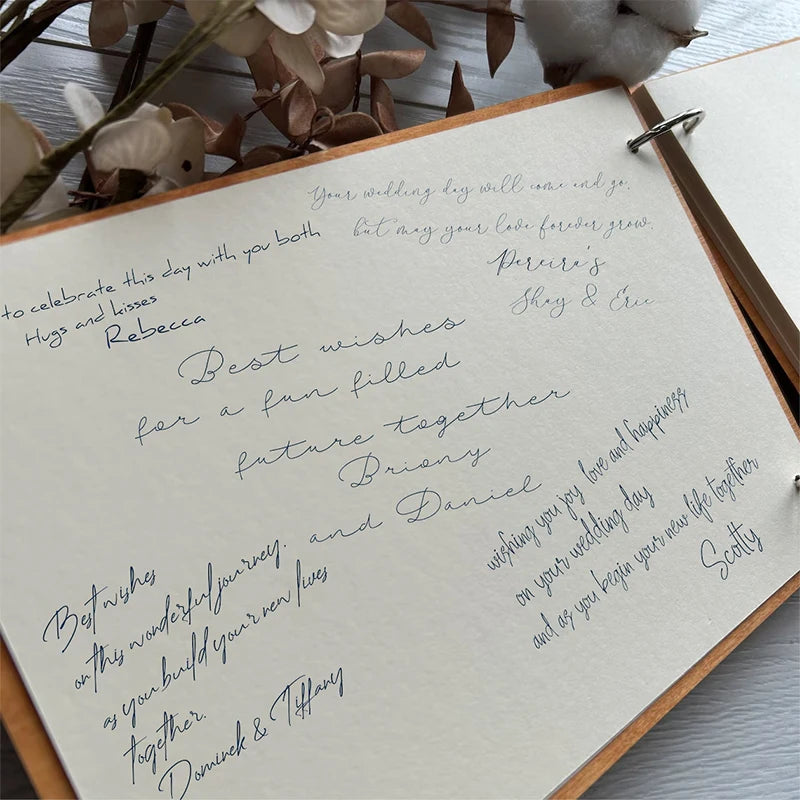 to celebrate this day with you both
Hugs and kisses
Rebecca
Your wedding day will come and go,
but may your love forever grow.
Pereira's
Shay & Eric
Best wishes
for a fun filled
future together
Briony
and Daniel
wishing you joy love and happiness
on your wedding day
and as you begin your new life together
Scotty
Best wishes
on this wonderful journey.
as you build your new lives
together.
Dominek & Tiffany